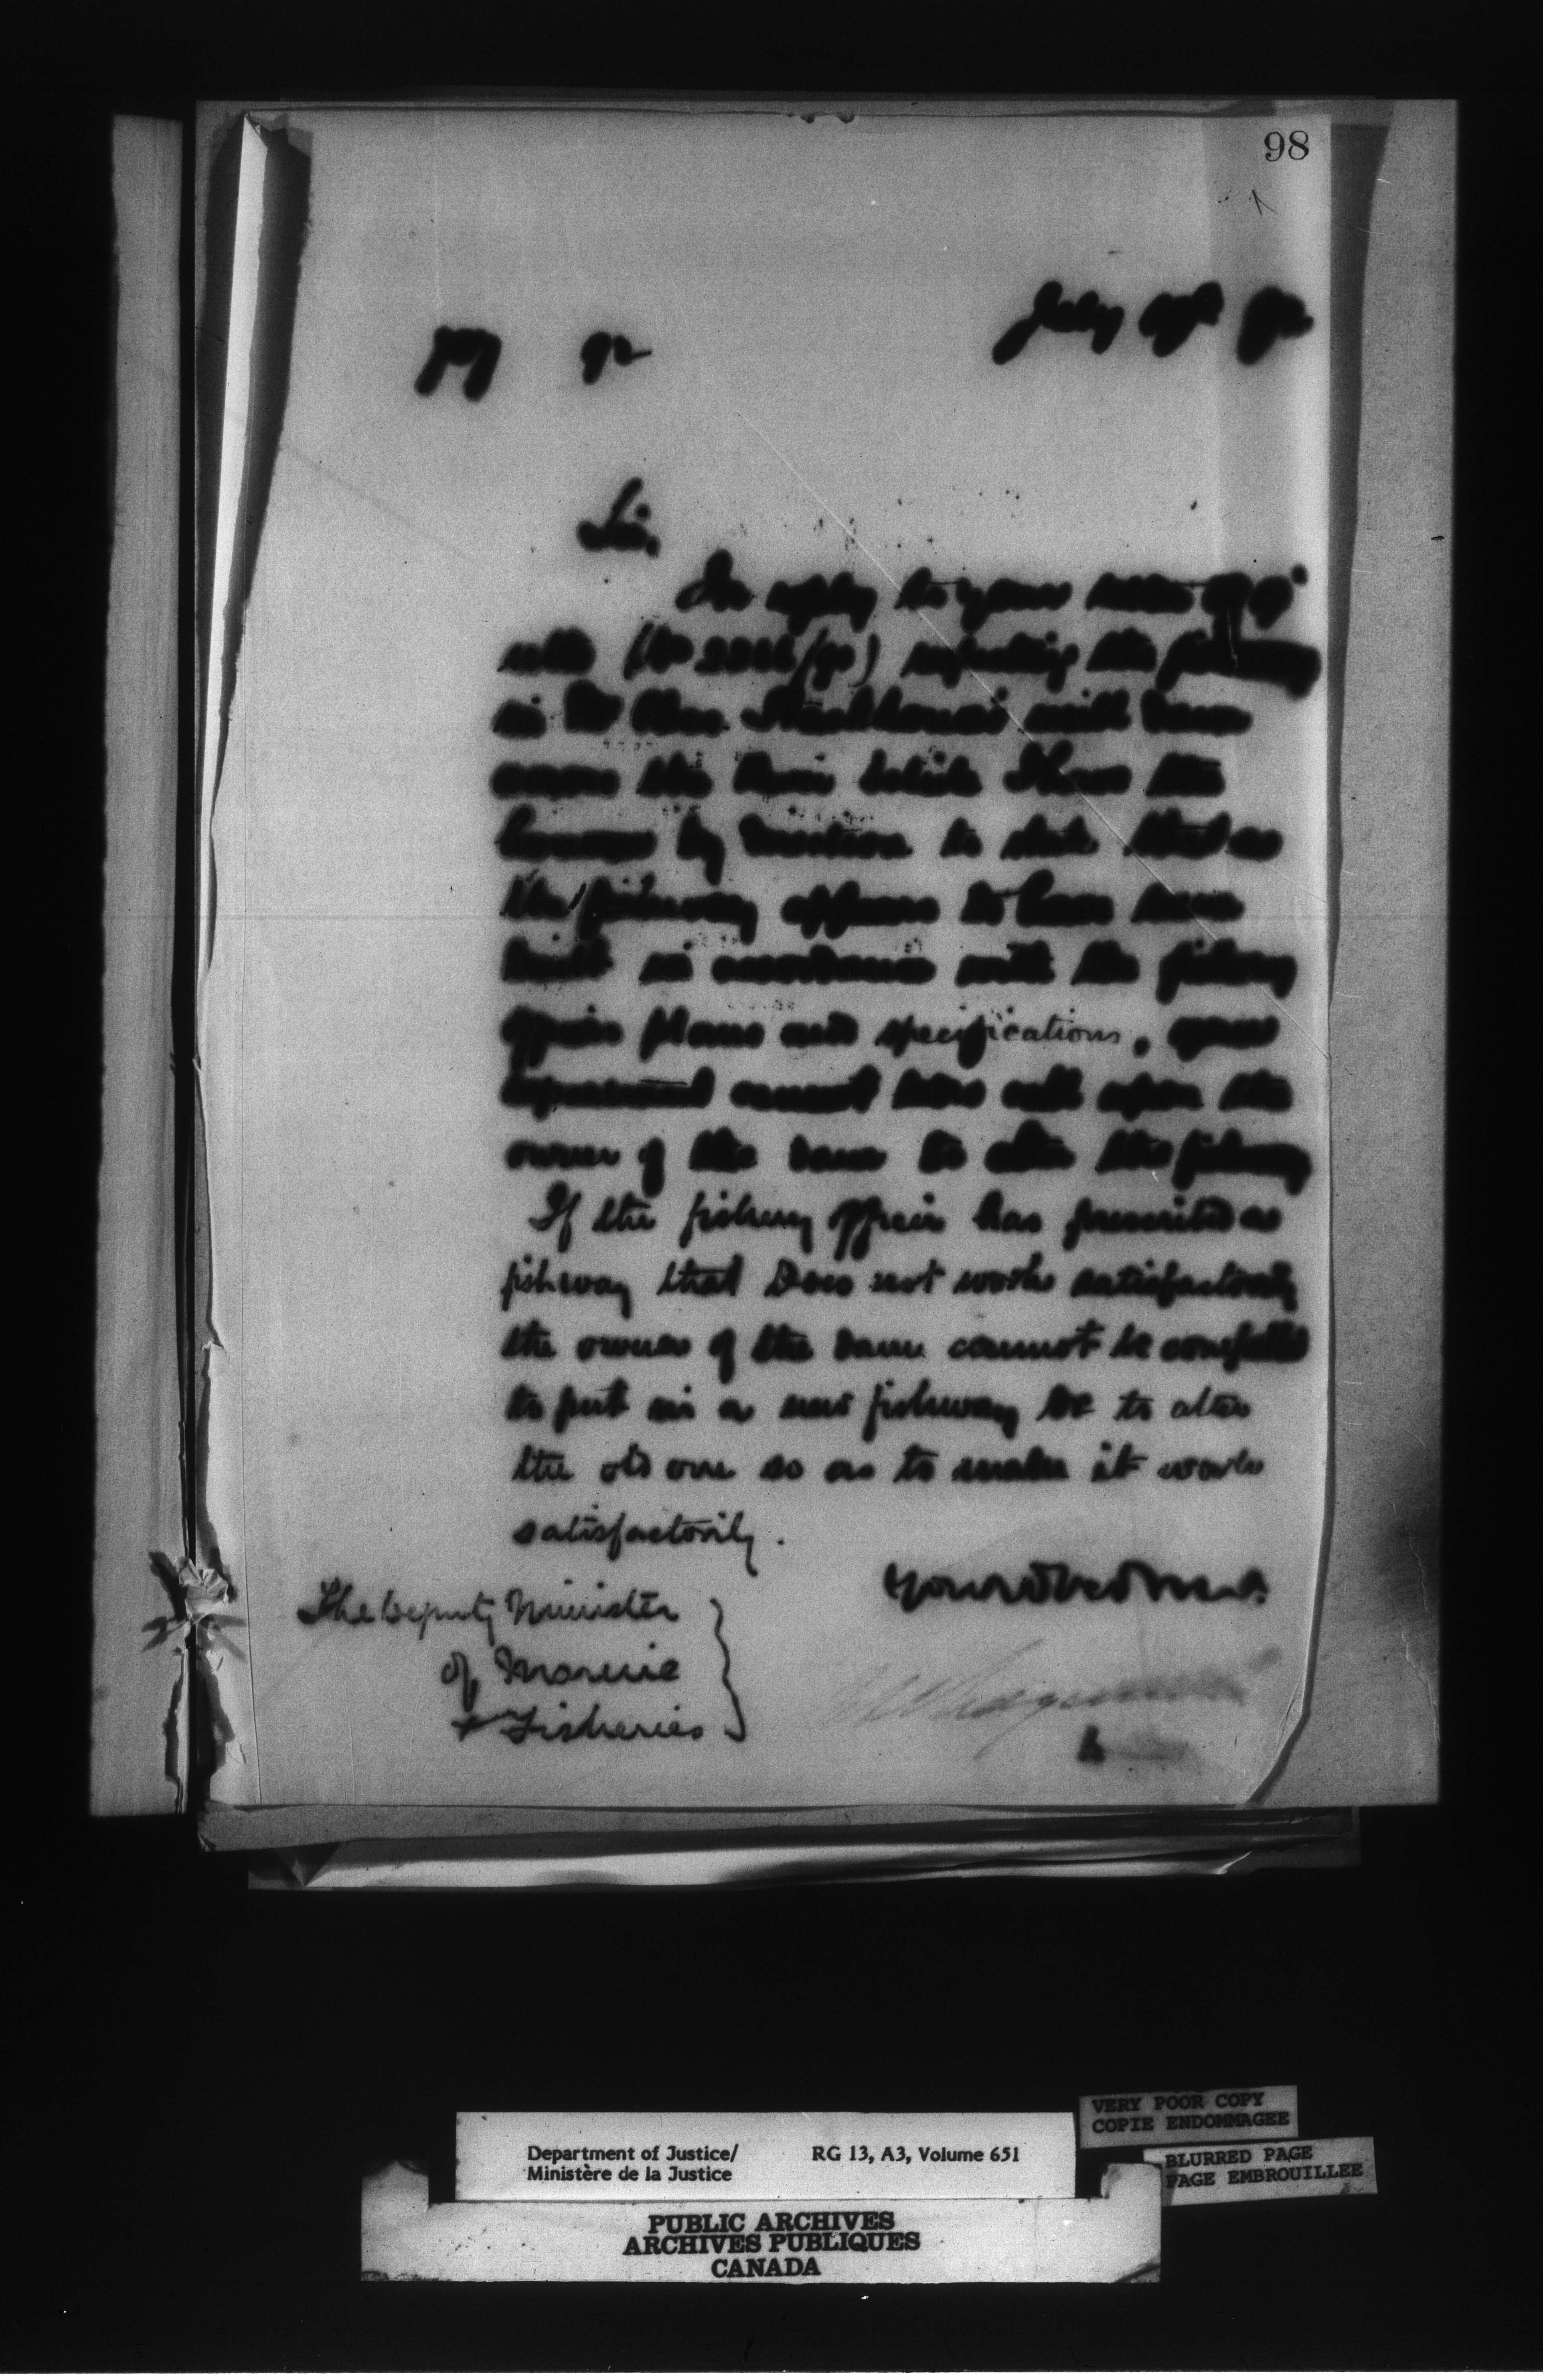 98
July 92
92
Sir,
In reply to your
note regarding the fishway
in mill dam
across the I have the
honour by direction to state that as
the fishway appears to have been
built in accordance with the fishery
officers plans and specifications, your
Department cannot now call upon the
owner of the dam to alter the fishway
If the fishery officer has prescribed a
fishway that does not work satisfactorily
the owner of the dam cannot be compelled
to put in a new fishway or to alter
the old one so as to make it work
satisfactorily.
The Deputy Minister
of Marine
& Fisheries
Department of Justice/
Ministère de la Justice
RG 13, A3, Volume 651
VERY POOR COPY
COPIE ENDOMMAGEE
BLURRED PAGE
PAGE EMBROUILLEE
PUBLIC ARCHIVES
ARCHIVES PUBLIQUES
CANADA